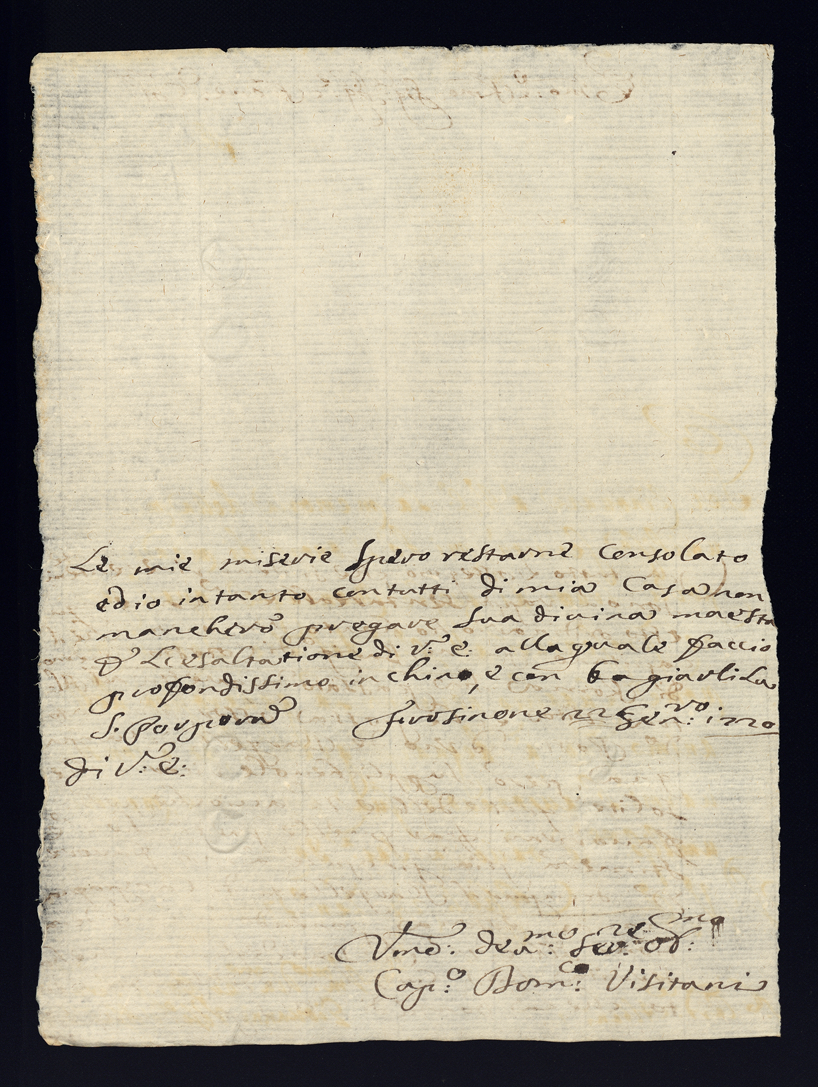 Le mie miserie spero restarne consolato
ed io intanto con tutti di mia Casa non
mancherò pregare sua divina maestà
P L'esaltatione di V.ª E. alla quale faccio
profondissimo inchino, e con bagiarli la
S. Porpora Frosinone 22 Gen.ro 1720
di V.ª E.
Vmo. dev.mo Ser. Ob.mo
Cap.o Dom.co Visitani